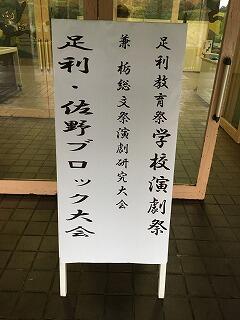 足利教育祭学校演劇祭
兼 栃総文祭演劇研究大会
足利・佐野ブロック大会